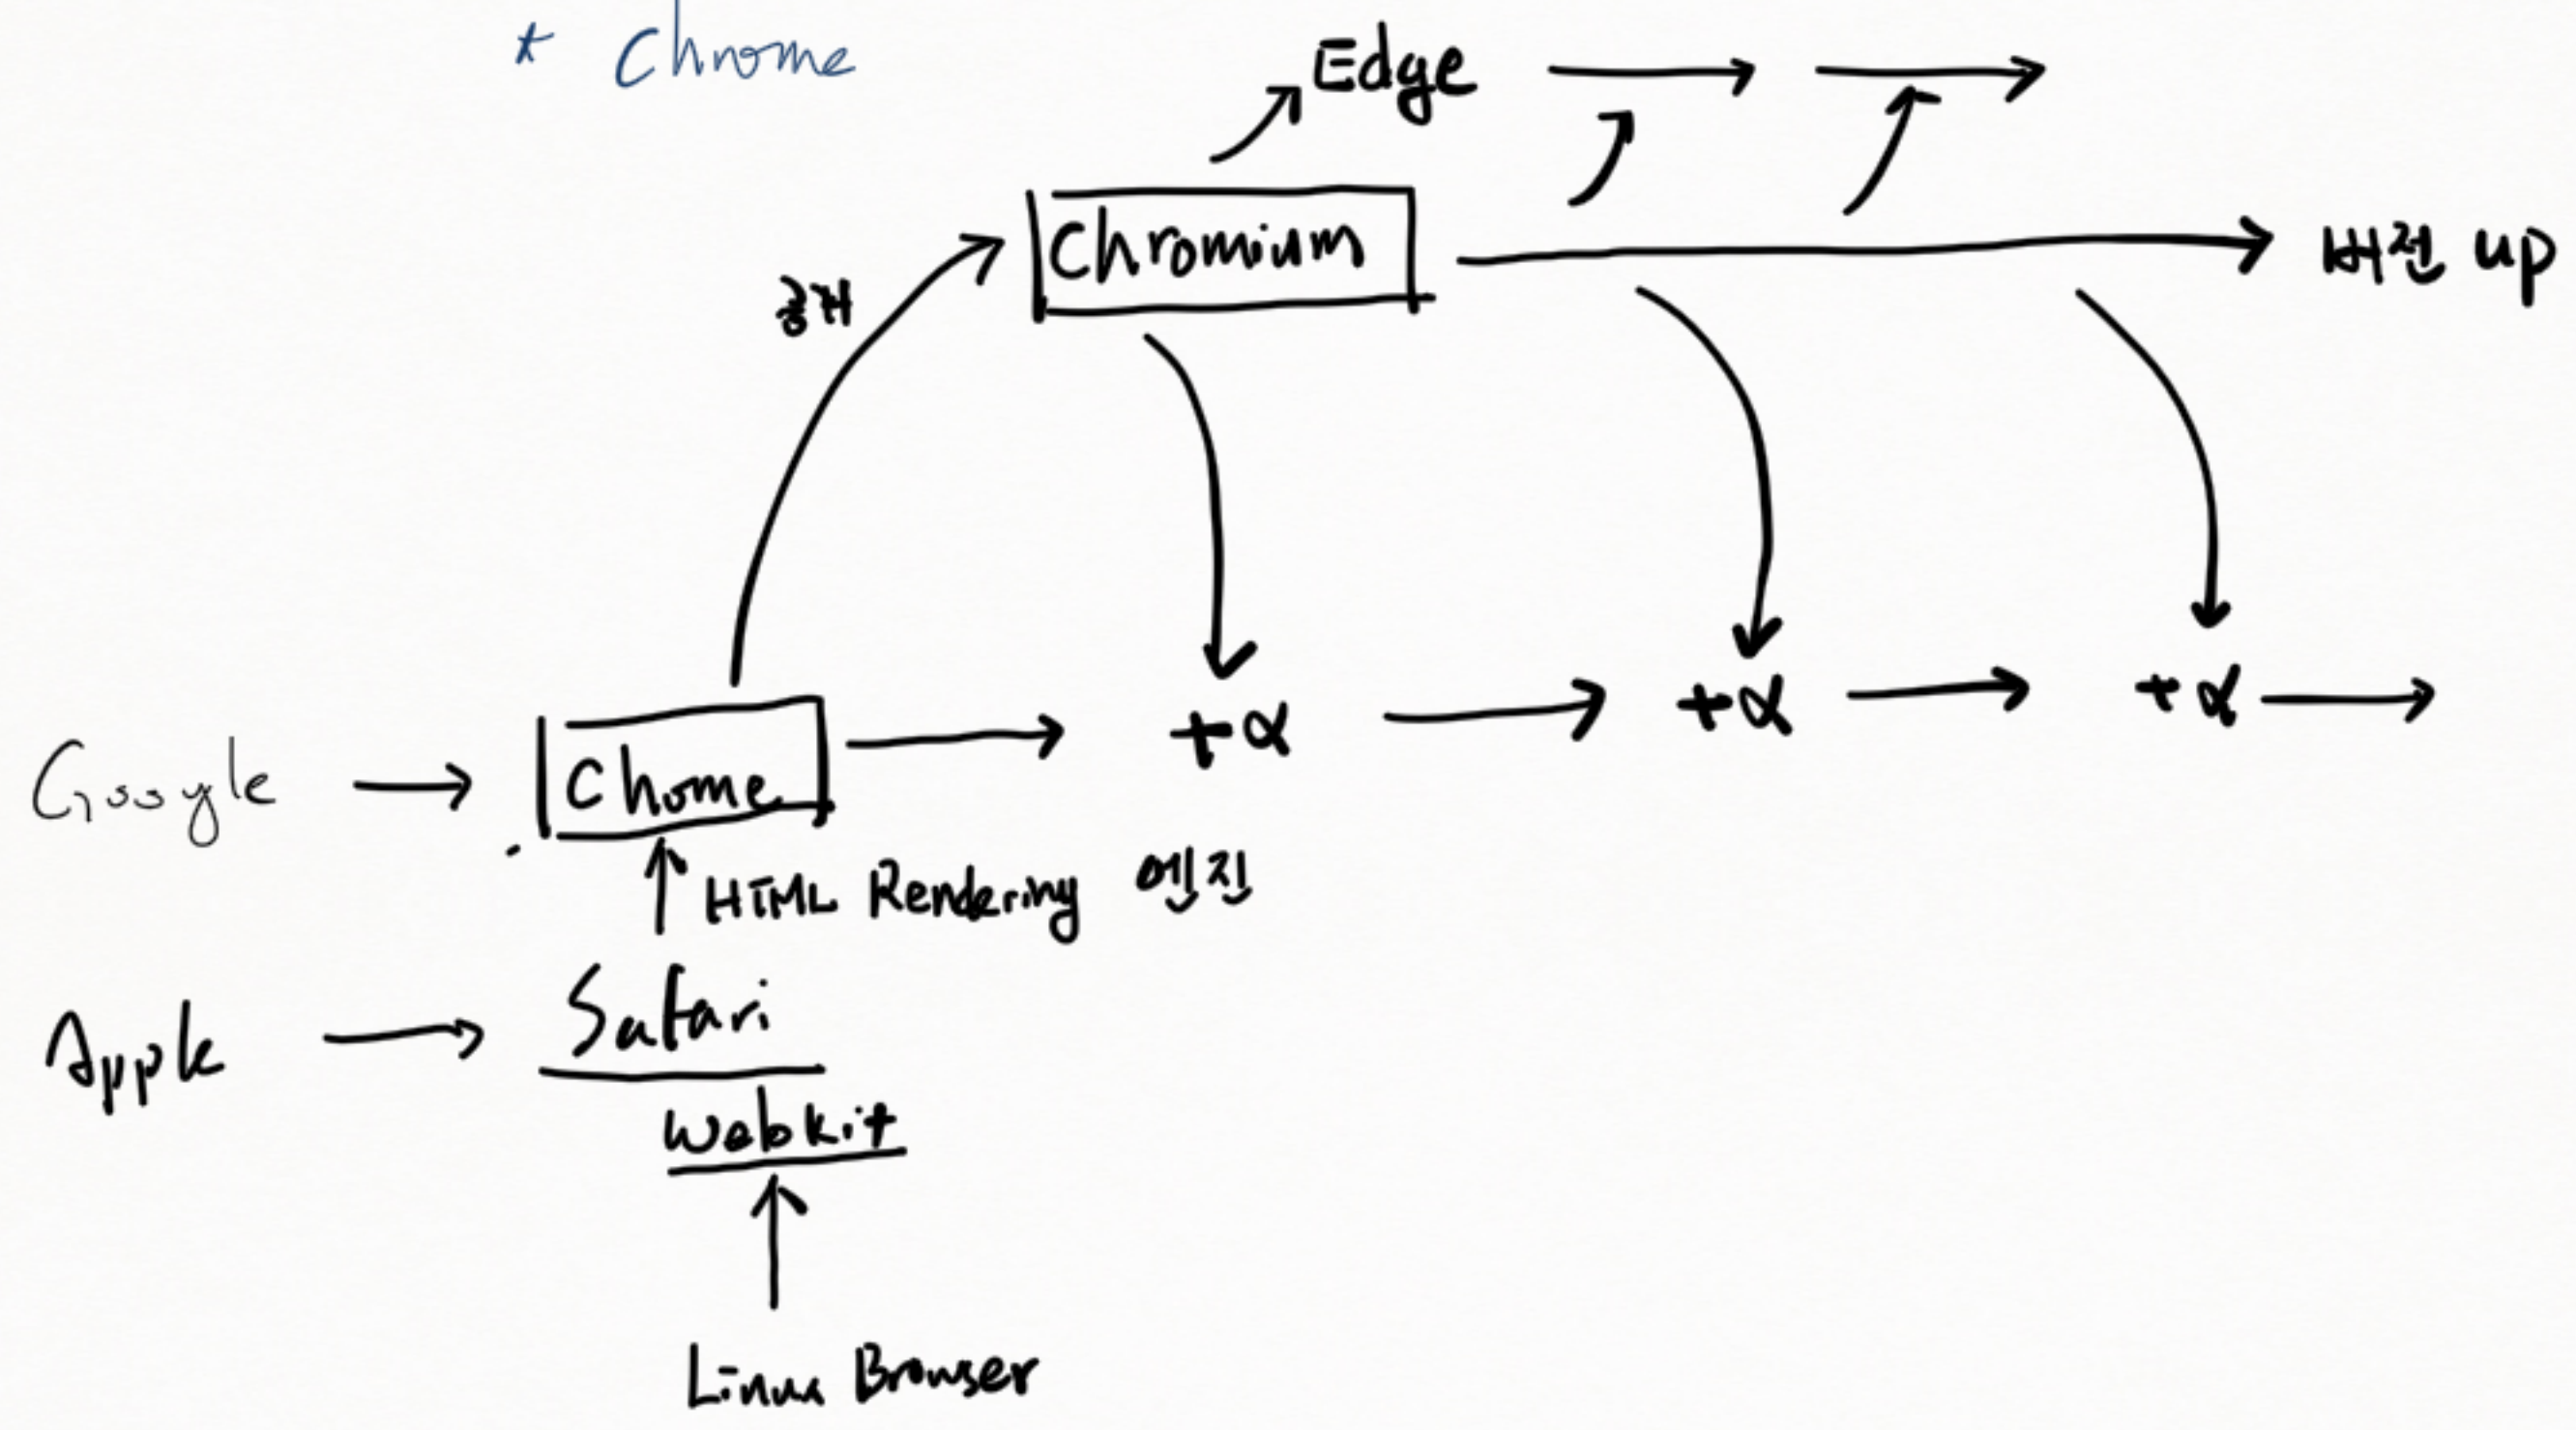 * Chrome
Edge
Chromium
버전 up
공개
Google
Chome
+α
+α
+α
HTML Rendering 엔진
Apple
Safari
Webkit
Linux Browser